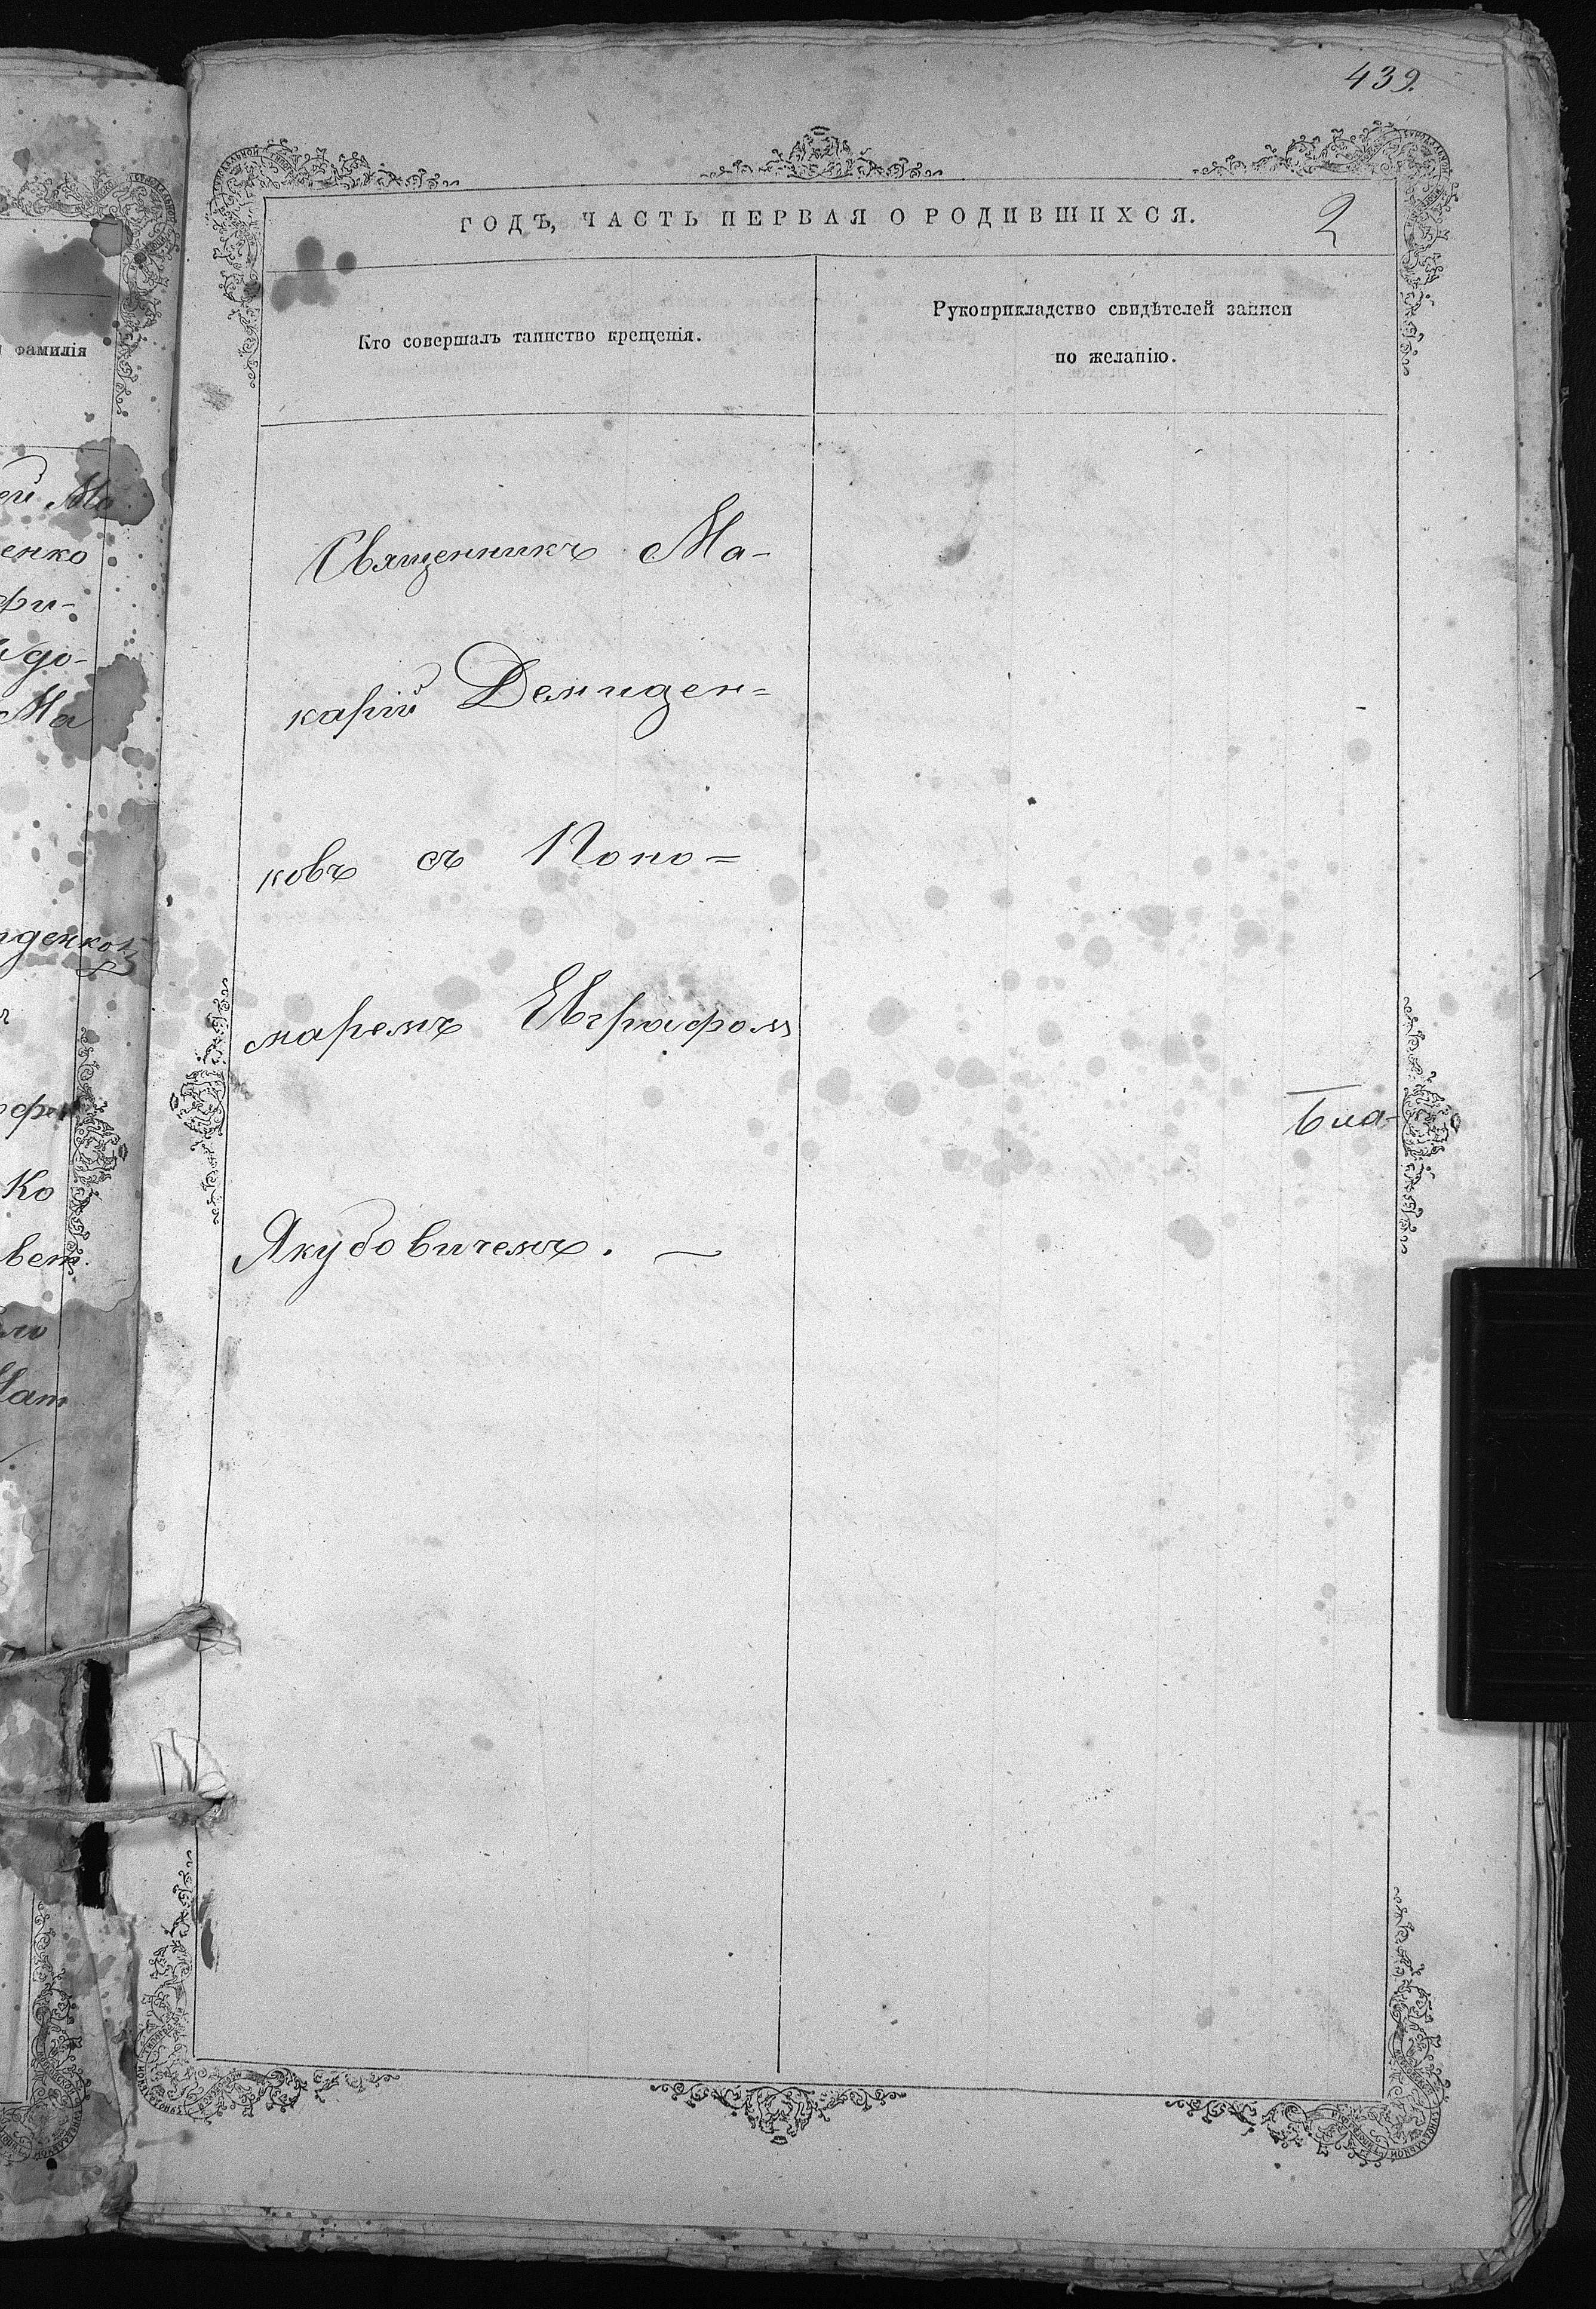 439.
ГОДЪ, ЧАСТЬ ПЕРВАЯ О РОДИВШИХСЯ.
2
Кто совершалъ таинство крещенія.
Рукоприкладство свидѣтелей записи
по желанію.
фамилія
Священникъ Ма-
карій Демиден=
ковъ съ Поно=
маремъ Евграфомъ
Якубовичемъ. —
Бла-
ей Ма
енко
фи-
до-
Ма
иденковъ
Ко
вет.